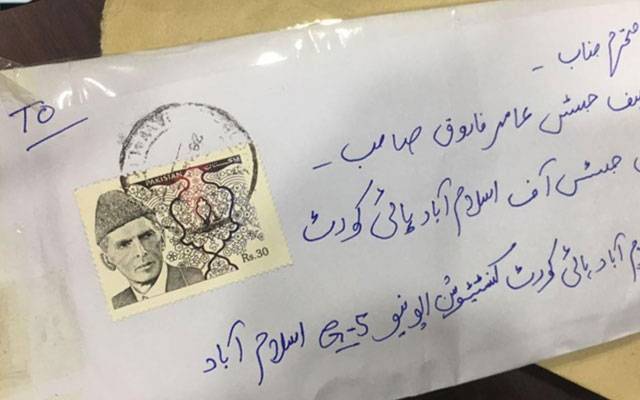 TO
محترم جناب -
چیف جسٹس عامر فاروق صاحب -
جسٹس آف اسلام آباد ہائی کورٹ
آباد ہائی کورٹ کنسٹیٹیوشن ایونیو G-5 اسلام آباد
PAKISTAN
Rs.30